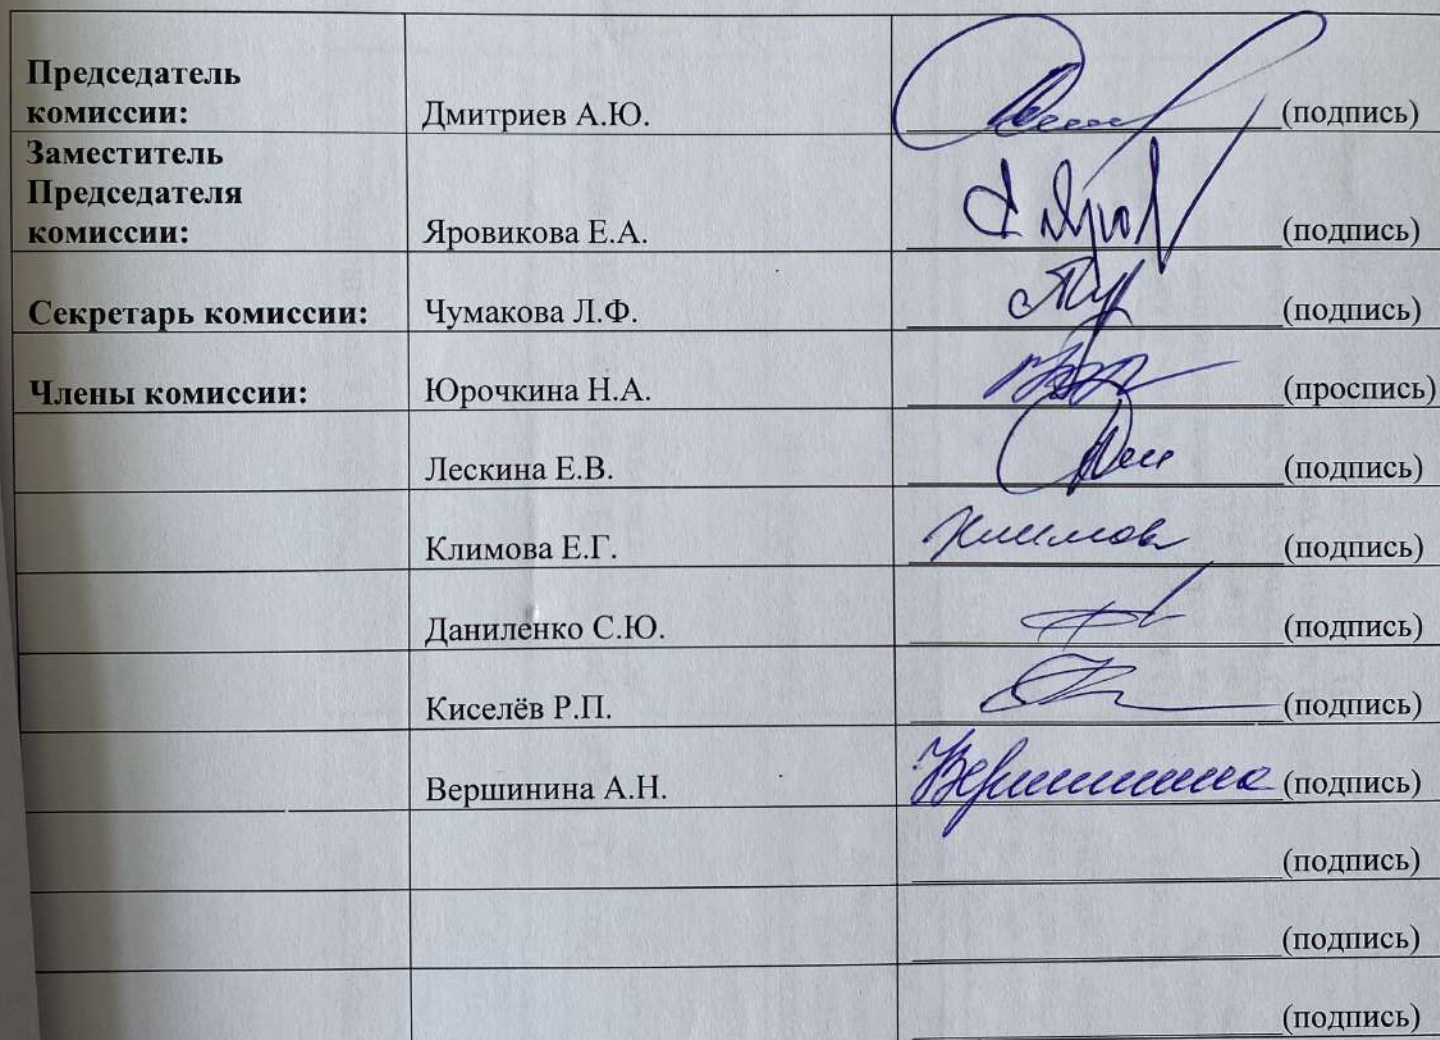 Председатель
комиссии:
Дмитриев А.Ю.
(подпись)
Заместитель
Председателя
комиссии:
Яровикова Е.А.
(подпись)
Секретарь комиссии:
Чумакова Л.Ф.
(подпись)
Члены комиссии:
Юрочкина Н.А.
(проспись)
Лескина Е.В.
(подпись)
Климова Е.Г.
Климов
(подпись)
Даниленко С.Ю.
(подпись)
Киселёв Р.П.
(подпись)
Вершинина А.Н.
Вершинина
(подпись)
(подпись)
(подпись)
(подпись)